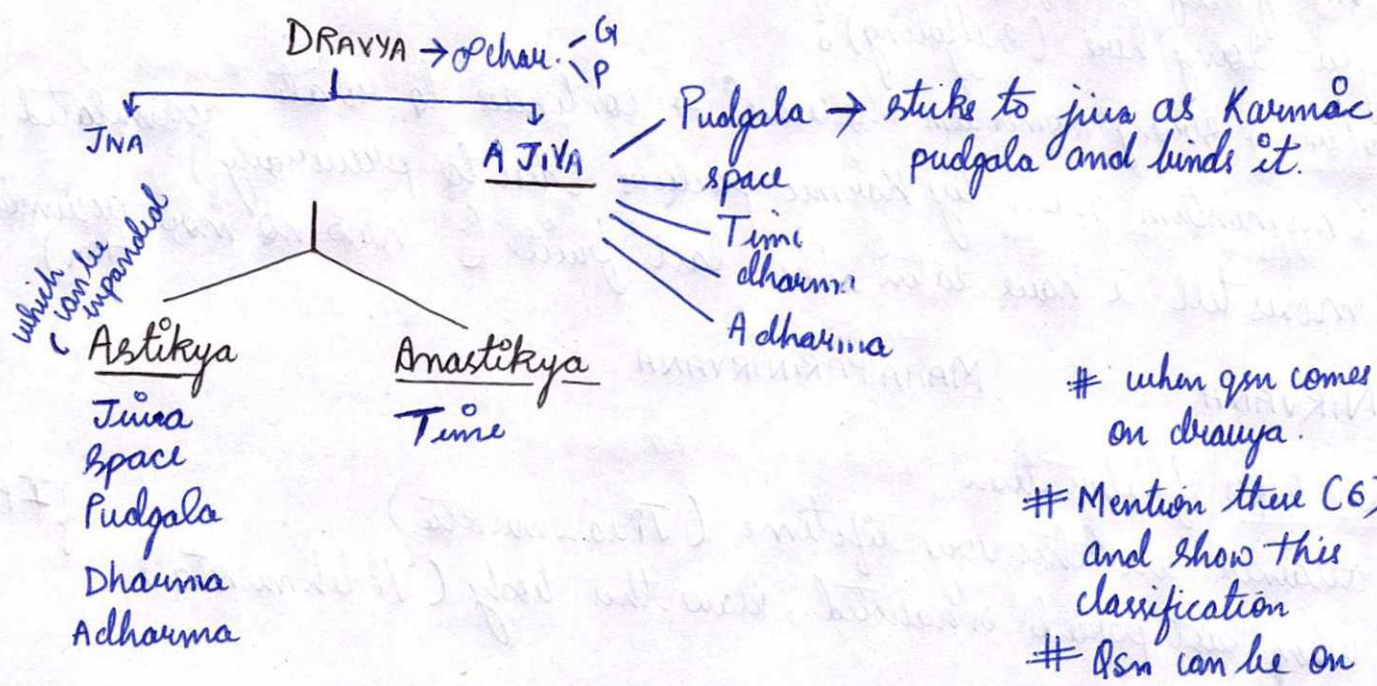 DRAVYA → ∞ char. G
P
JIVA
AJIVA
Pudgala → stiks to jiva as Karmic
pudgala and binds it.
space
Time
dharma
Adharma
which
can be
expanded
Astikya
Jiva
Space
Pudgala
Dharma
Adharma
Anastikya
Time
# when qsn comes
on dravya.
# Mention these (6)
and show this
classification
# Qsn can be on